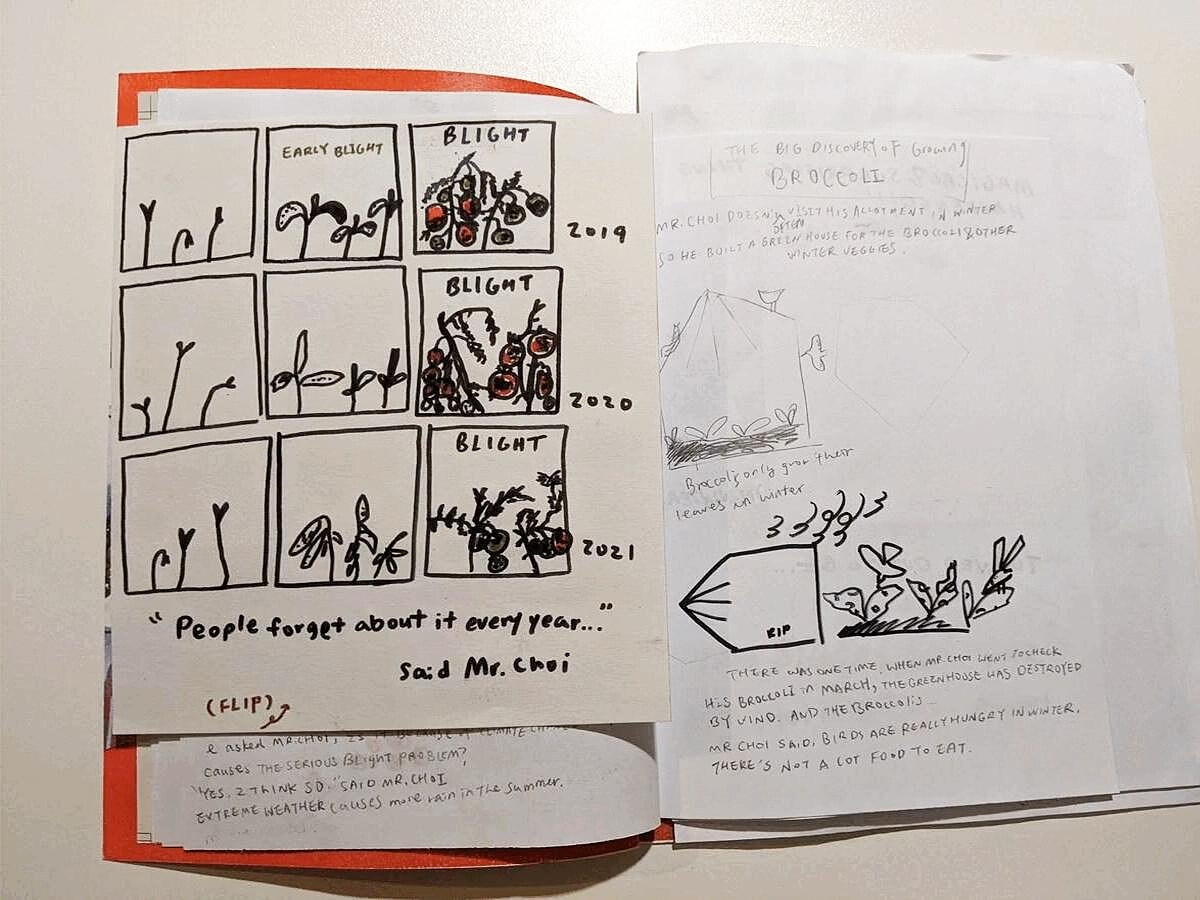 EARLY BLIGHT
BLIGHT
2019
BLIGHT
2020
BLIGHT
2021
"People forget about it every year..."
Said Mr. Choi
(FLIP)
asked MR.CHOI, IS IT BECAUSE OF CLIMATE
causes THE SERIOUS BLIGHT PROBLEM?
"YES, I THINK SO." SAID MR. CHOI
EXTREME WEATHER causes more rain in the summer.
THE BIG DISCOVERY OF Growing
BROCCOLI
MR. CHOI DOESN'T VISIT HIS ALLOTMENT IN WINTER
OFTEN
SO HE BUILT A GREEN HOUSE FOR THE BROCCOLI & OTHER
WINTER VEGGIES.
Broccolis only grow their
leaves in winter
RIP
THERE WAS ONE TIME, WHEN MR. CHOI WENT TO CHECK
HIS BROCCOLI IN MARCH, THE GREENHOUSE WAS DESTROYED
BY WIND. AND THE BROCCOLIS...
MR CHOI SAID, BIRDS ARE REALLY HUNGRY IN WINTER,
THERE'S NOT A LOT FOOD TO EAT.